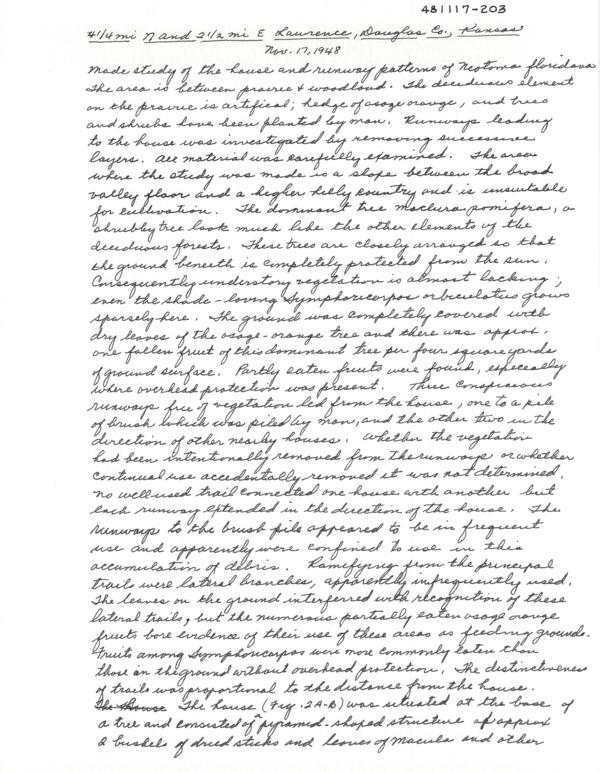 481117-203
4 1/4 mi N and 2 1/2 mi E Lawrence, Douglas Co., Kansas
Nov. 17, 1948
Made study of the house and runway patterns of Neotoma floridana
The area is between prairie & woodland. The deciduous element
on the prairie is artifical; hedge of osage orange, and trees
and shrubs have been planted by man. Runways leading
to the house was investigated by removing successive
layers. All material was carefully examined. The area
where the study was made is a slope between the broad
valley floor and a higher hilly country and is unsuitable
for cultivation. The dominant tree Maclura pomifera, a
shrubby tree look much like the other elements of the
deciduous forests. These trees are closely arranged so that
the ground beneeth is completely protected from the sun.
Consequently understory vegetation is almost lacking;
even the shade-loving Symphoricarpos orbiculatus grows
sparsely here. The ground was completely covered with
dry leaves of the osage-orange tree and there was approx.
one fallen fruit of this dominant tree per four square yards
of ground surface. Partly eaten fruits were found, especially
where overhead protection was present. Three conspicious
runways free of vegetation led from the house, one to a pile
of brush which was piled by man, and the other two in the
direction of other nearby houses. Whether the vegetation
had been intentionally removed from the runways or whether
continual use accidentally removed it was not determined.
No well-used trail connected one house with another but
each runway extended in the direction of the house. The
runways to the brush pile appeared to be in frequent
use and apparently were confined to use in this
accumulation of debris. Ramifying from the principal
trail were lateral branches, apparently infrequently used.
The leaves on the ground interferred with recognition of these
lateral trails, but the numerous partially eaten osage orange
fruits bore evidence of their use of these areas as feeding grounds.
Fruits among Symphoricarpos were more commonly eaten than
those on the ground without overhead protection. The distinctiveness
of trails was proportional to the distance from the house.
The house The house (Fig. 2A-B) was situated at the base of
a tree and consisted of a pyramid-shaped structure of approx
2 bushels of dried sticks and leaves of Macula and other